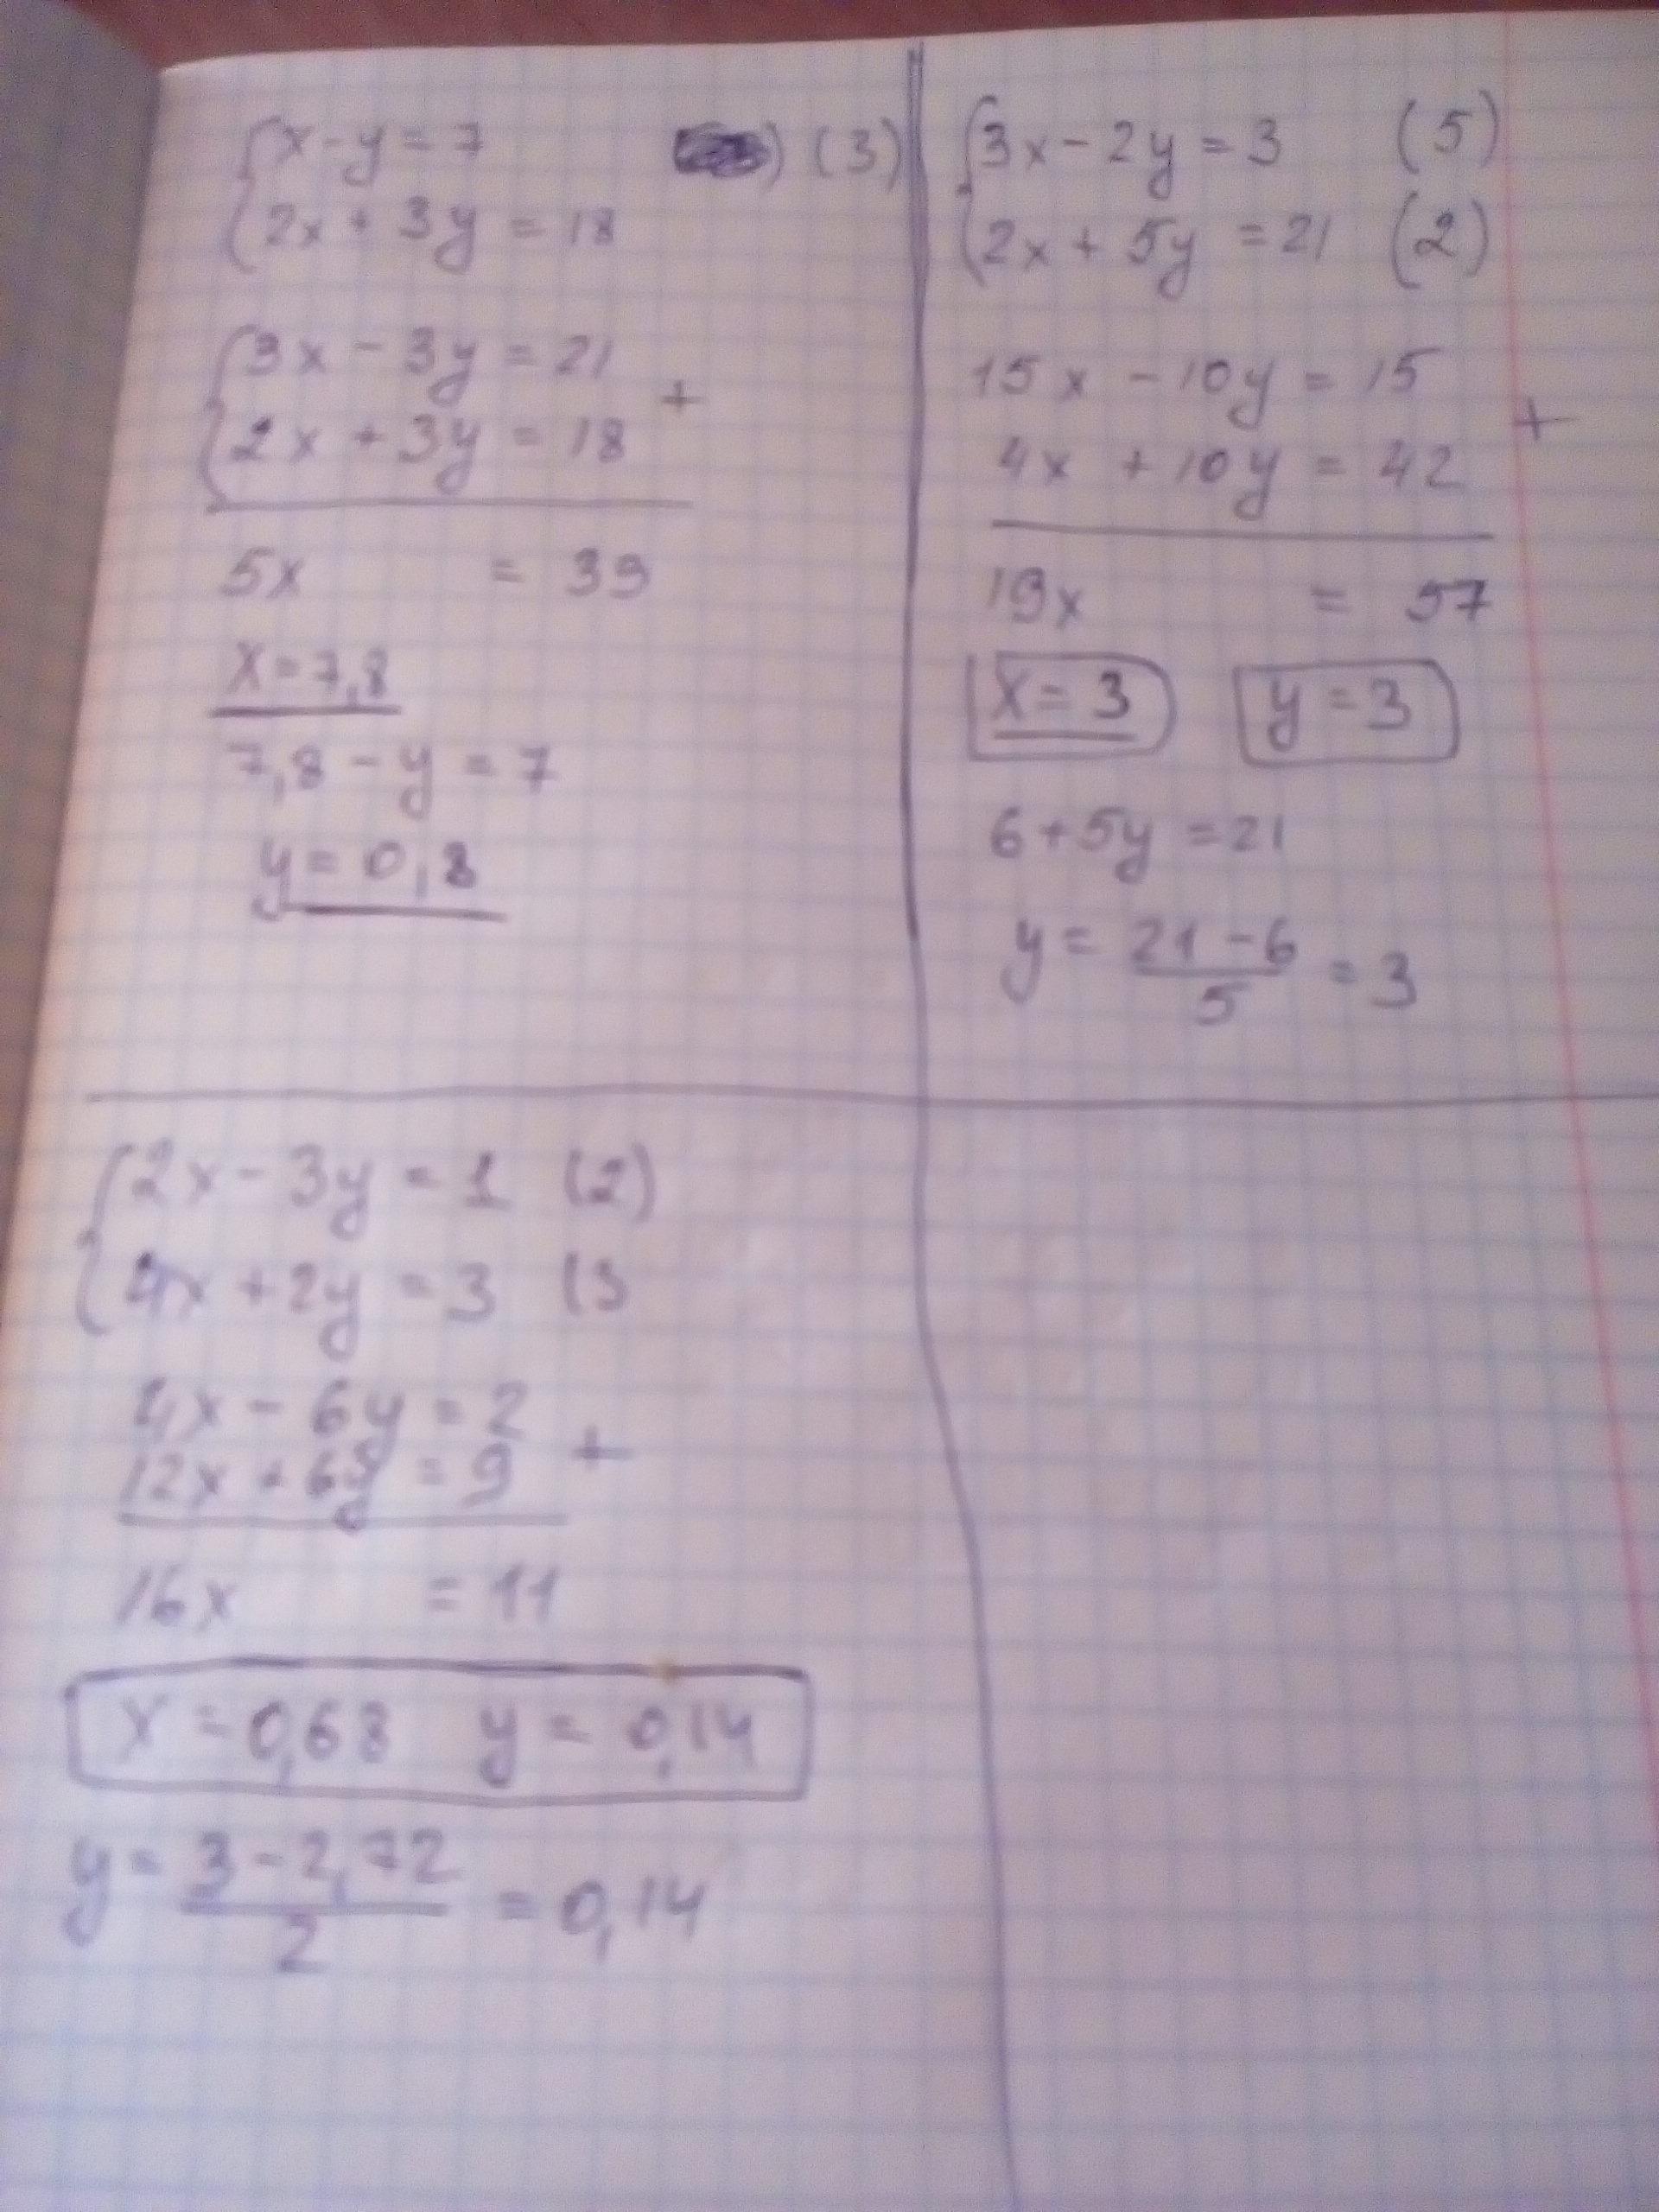 x - y = 7 (3)
2x + 3y = 18
3x - 3y = 21
2x + 3y = 18
+
5x = 39
x = 7,8
7,8 - y = 7
y = 0,8
3x - 2y = 3 (5)
2x + 5y = 21 (2)
15x - 10y = 15
4x + 10y = 42
+
19x = 57
x = 3 y = 3
6 + 5y = 21
y = \frac{21 - 6}{5} = 3
2x - 3y = 1 (2)
4x + 2y = 3 (3
4x - 6y = 2
12x + 6y = 9
+
16x = 11
x = 0,68 y = 0,14
y = \frac{3 - 2,72}{2} = 0,14